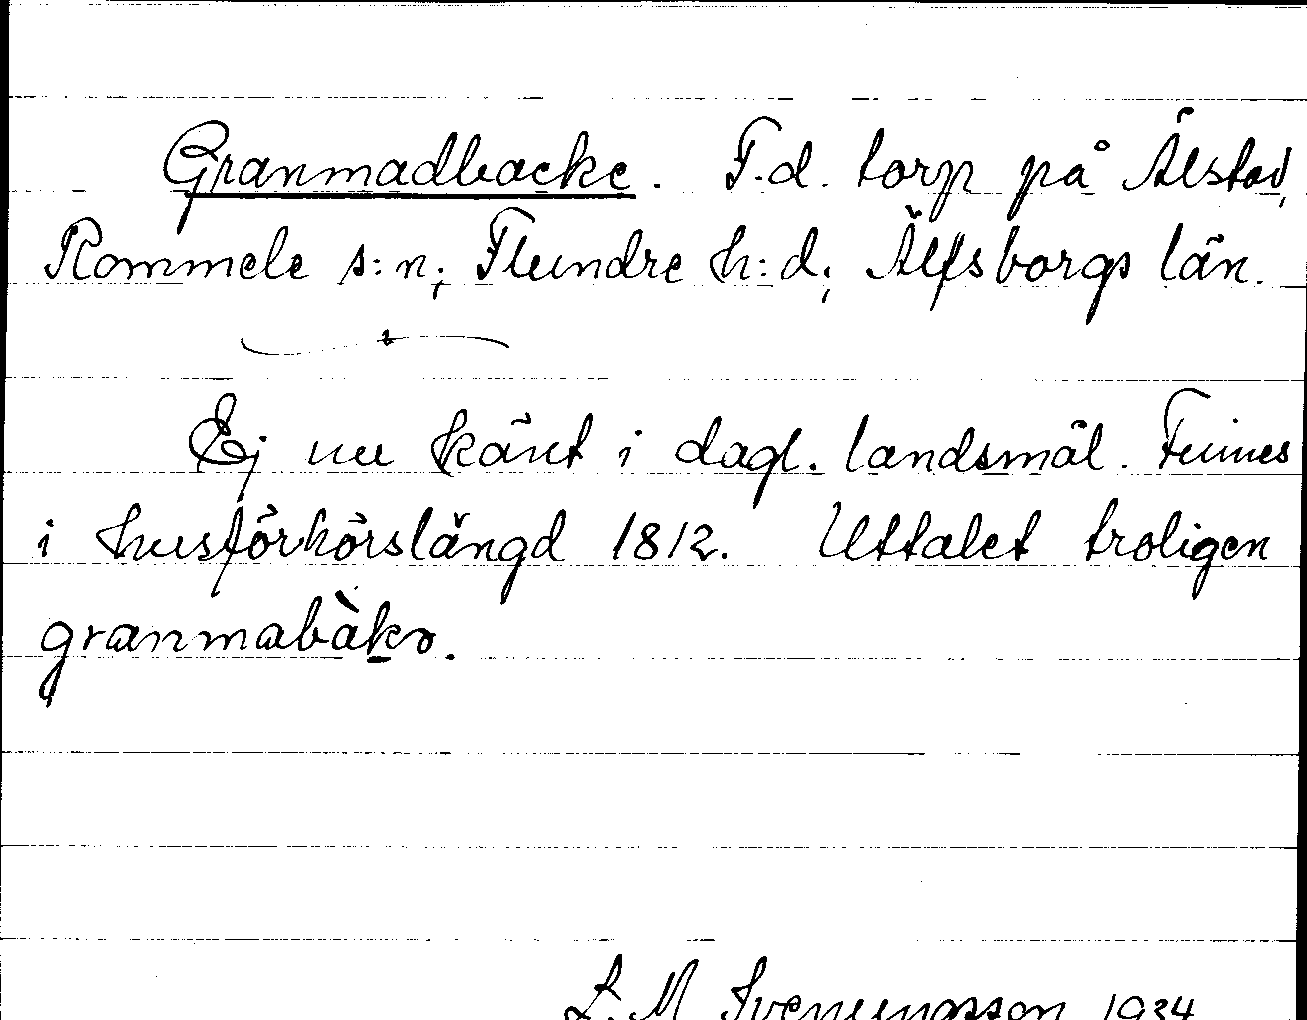 Granmadbacke. F.d. torp på Älstad,
Rommele s:n; Flundre h:d; Älfsborgs län.
Ej nu känt i dagl. landsmål. Finnes
i husförhörslängd 1812. Uttalet troligen
granmabàkə.
L. M. Svenungsson 1934